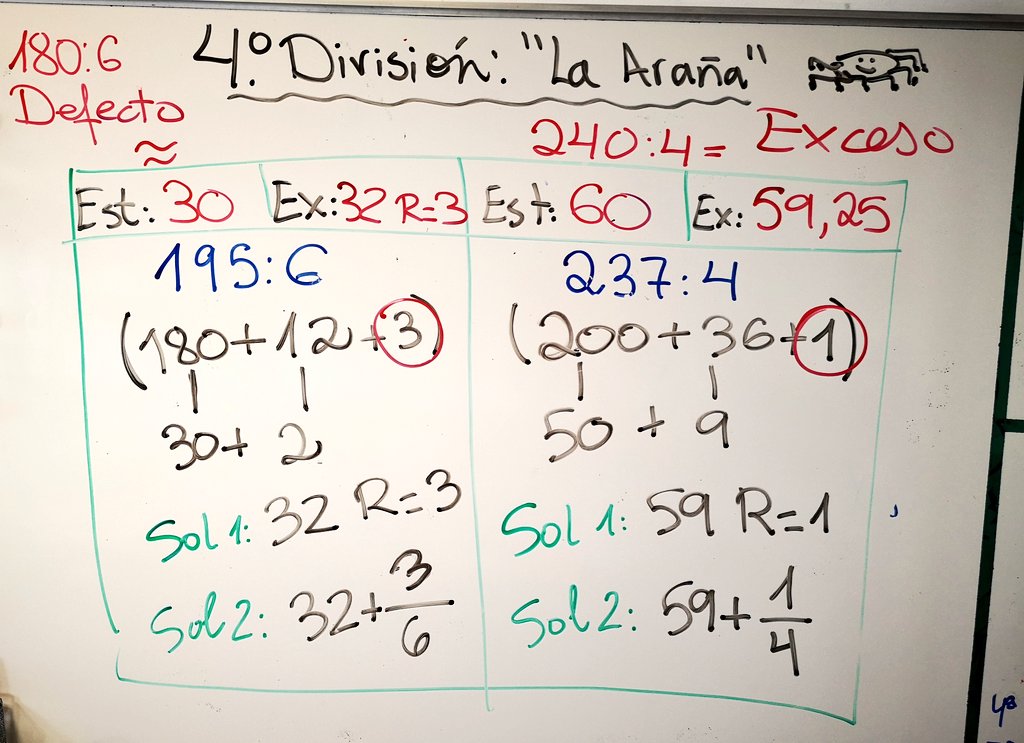 180:6
Defecto
≈
4º División: "La Araña"
240:4= Exceso
Est: 30 Ex: 32 R=3
195:6
(180+12+3)
30+ 2
Sol 1: 32 R=3
Sol 2: 32+3/6
Est: 60 Ex: 59,25
237:4
(200+36+1)
50 + 9
Sol 1: 59 R=1
Sol 2: 59+1/4